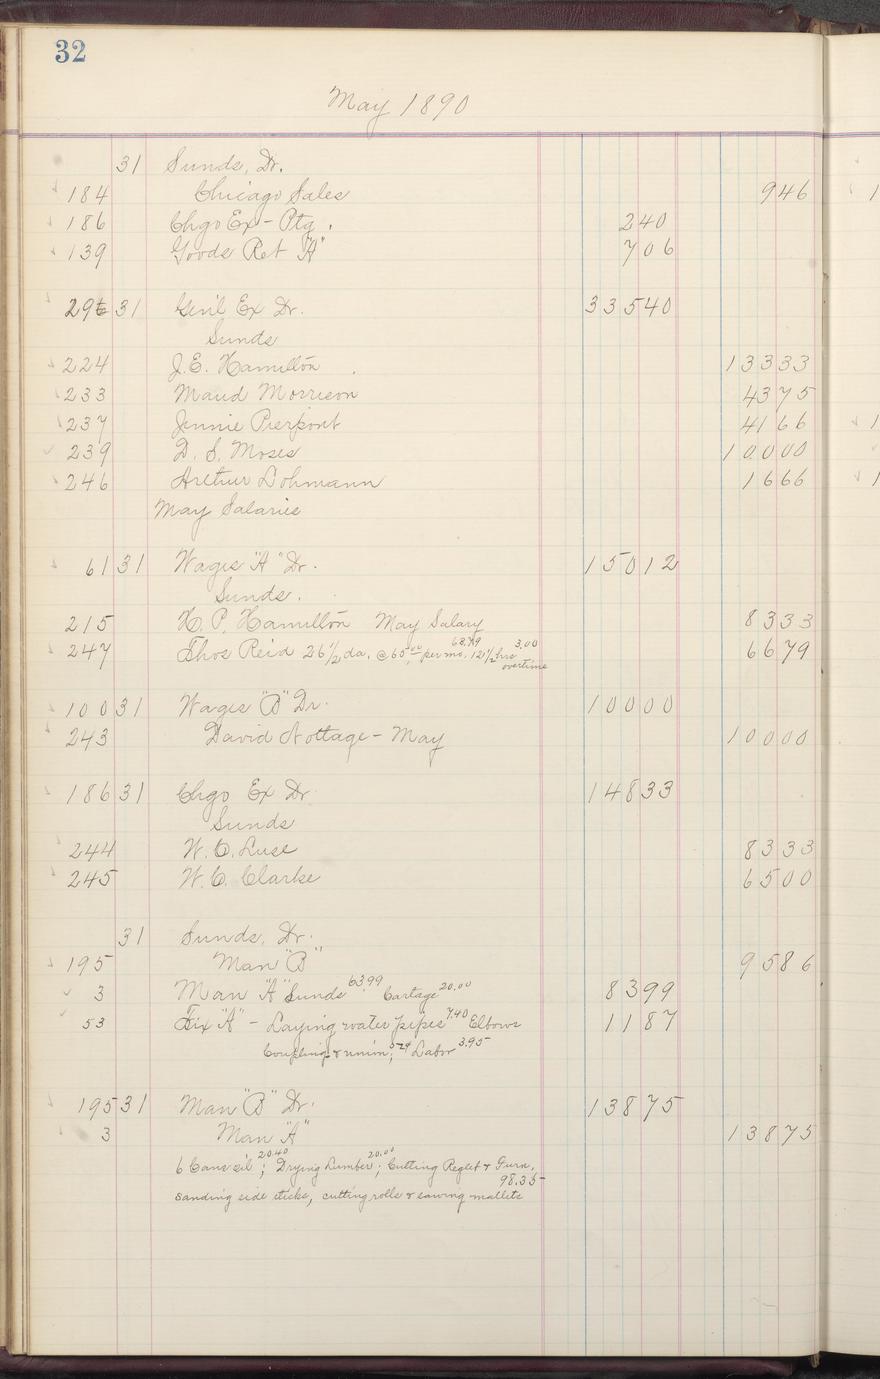 32
May 1890
31 Sunds, Dr.
184 Chicago Sales 946
186 Chgo Ex - Ptg. 240
139 Goods Ret "A" 706
296 31 Gen'l Ex Dr. 33540
Sunds
224 J. E. Hamilton 13333
233 Maud Morrison 4375
237 Jennie Pierpont 4166
239 D. S. Moses 10000
246 Arthur Lohmann 1666
May Salaries
61 31 Wages "A" Dr. 15012
Sunds.
215 H. P. Hamilton May Salary 8333
247 Thos Reid 26 1/2 da. @ 65.00 per mo. 63.79 12 1/2 hrs overtime 3.00 6679
100 31 Wages "B" Dr. 10000
243 David Nottage - May 10000
186 31 Chgo Ex Dr. 14833
Sunds
244 W. C. Luse 8333
245 W. C. Clarke 6500
31 Sunds, Dr.
195 Man "B" 9586
3 Man "A" Sunds 63.99 Cartage 20.00 8399
53 Fix "A" - Laying water pipes 7.40 Elbows 1187
Coupling & union, .52 Labor 3.95
195 31 Man "B" Dr. 13875
3 Man "A" 13875
6 Cans oil 20.40; Drying Lumber 20.00; Cutting Reglet & Furn.
sanding side sticks, cutting rolls & sawing mallets 98.35